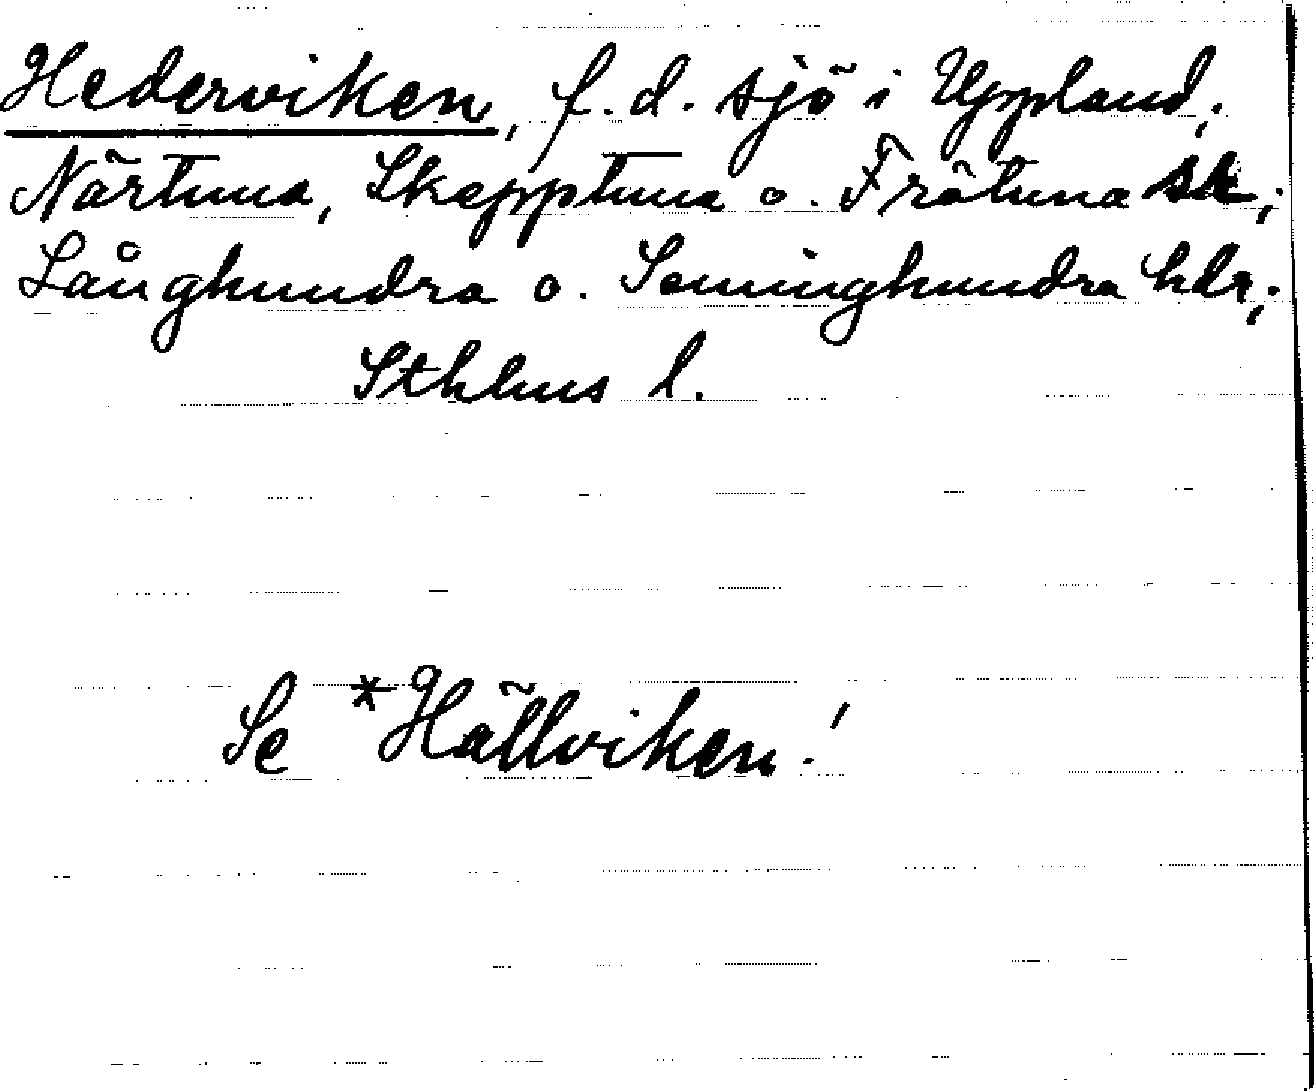 Hederviken, f.d. sjö i Uppland;
Närtuna, Skepptuna o. Frötuna sk;
Långhundra o. Seminghundra hdr;
Sthlms l.
Se *Hällviken!